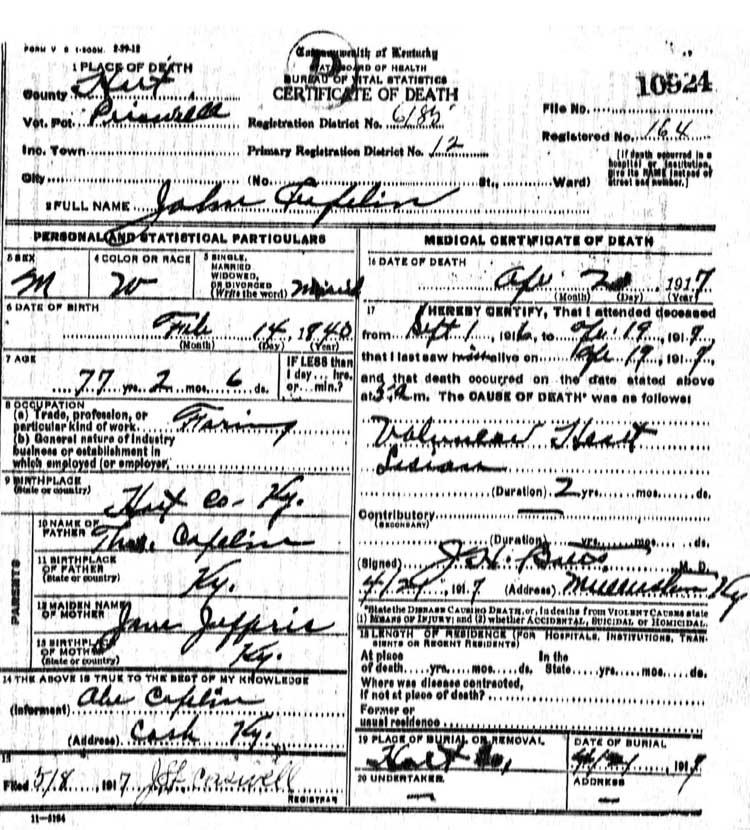 FORM V S 1-500M. 2-29-12
Commonwealth of Kentucky
STATE BOARD OF HEALTH
BUREAU OF VITAL STATISTICS
CERTIFICATE OF DEATH
10924
1 PLACE OF DEATH
County Hart
Vot. Pct.
Inc. Town
City
Registration District No. 6185
Primary Registration District No. 12
(No. St., Ward)
File No.
Registered No. 164
[If death occurred in a
hospital or institution,
give its NAME instead of
street and number.]
2 FULL NAME John Copelin
PERSONAL AND STATISTICAL PARTICULARS
3 SEX
M
4 COLOR OR RACE
W
5 SINGLE,
MARRIED
WIDOWED,
OR DIVORCED
(Write the word) Married
6 DATE OF BIRTH
Feb 14, 1840
(Month) (Day) (Year)
7 AGE
77 yrs. 2 mos. 6 ds.
IF LESS than
1 day... hrs.
or... min.?
8 OCCUPATION
(a) Trade, profession, or
particular kind of work. Farming
(b) General nature of industry
business or establishment in
which employed (or employer)
9 BIRTHPLACE
(State or country)
Hart Co- Ky.
PARENTS
10 NAME OF
FATHER Thos. Copelin
11 BIRTHPLACE
OF FATHER
(State or country) Ky.
12 MAIDEN NAME
OF MOTHER Jane Jeffris
13 BIRTHPLACE
OF MOTHER
(State or country) Ky.
14 THE ABOVE IS TRUE TO THE BEST OF MY KNOWLEDGE
(Informant) Abe Copelin
(Address) Cash Ky.
15
Filed 5/8, 1917 Caswell
REGISTRAR
11-5184
MEDICAL CERTIFICATE OF DEATH
16 DATE OF DEATH
Apr 20 1917
(Month) (Day) (Year)
17 I HEREBY CERTIFY, That I attended deceased
from Sept 1, 1916, to Apr 19, 1917
that I last saw him alive on Apr 19, 1917
and that death occurred on the date stated above
at m. The CAUSE OF DEATH* was as follows:
Valvular Heart
(Duration) 2 yrs. mos. ds.
Contributory
(SECONDARY)
(Duration) yrs. mos. ds.
(Signed) J.H. M. D.
4/21, 1917 (Address) Ky
*State the DISEASE CAUSING DEATH, or, in deaths from VIOLENT CAUSES state
(1) MEANS OF INJURY; and (2) whether ACCIDENTAL, SUICIDAL or HOMICIDAL.
18 LENGTH OF RESIDENCE (FOR HOSPITALS, INSTITUTIONS, TRAN-
SIENTS OR RECENT RESIDENTS)
At place In the
of death... yrs... mos... ds. State... yrs... mos... ds.
Where was disease contracted,
if not at place of death?
Former or
usual residence
19 PLACE OF BURIAL OR REMOVAL
Hart Co,
DATE OF BURIAL
4/21, 1917
20 UNDERTAKER
—
ADDRESS
—